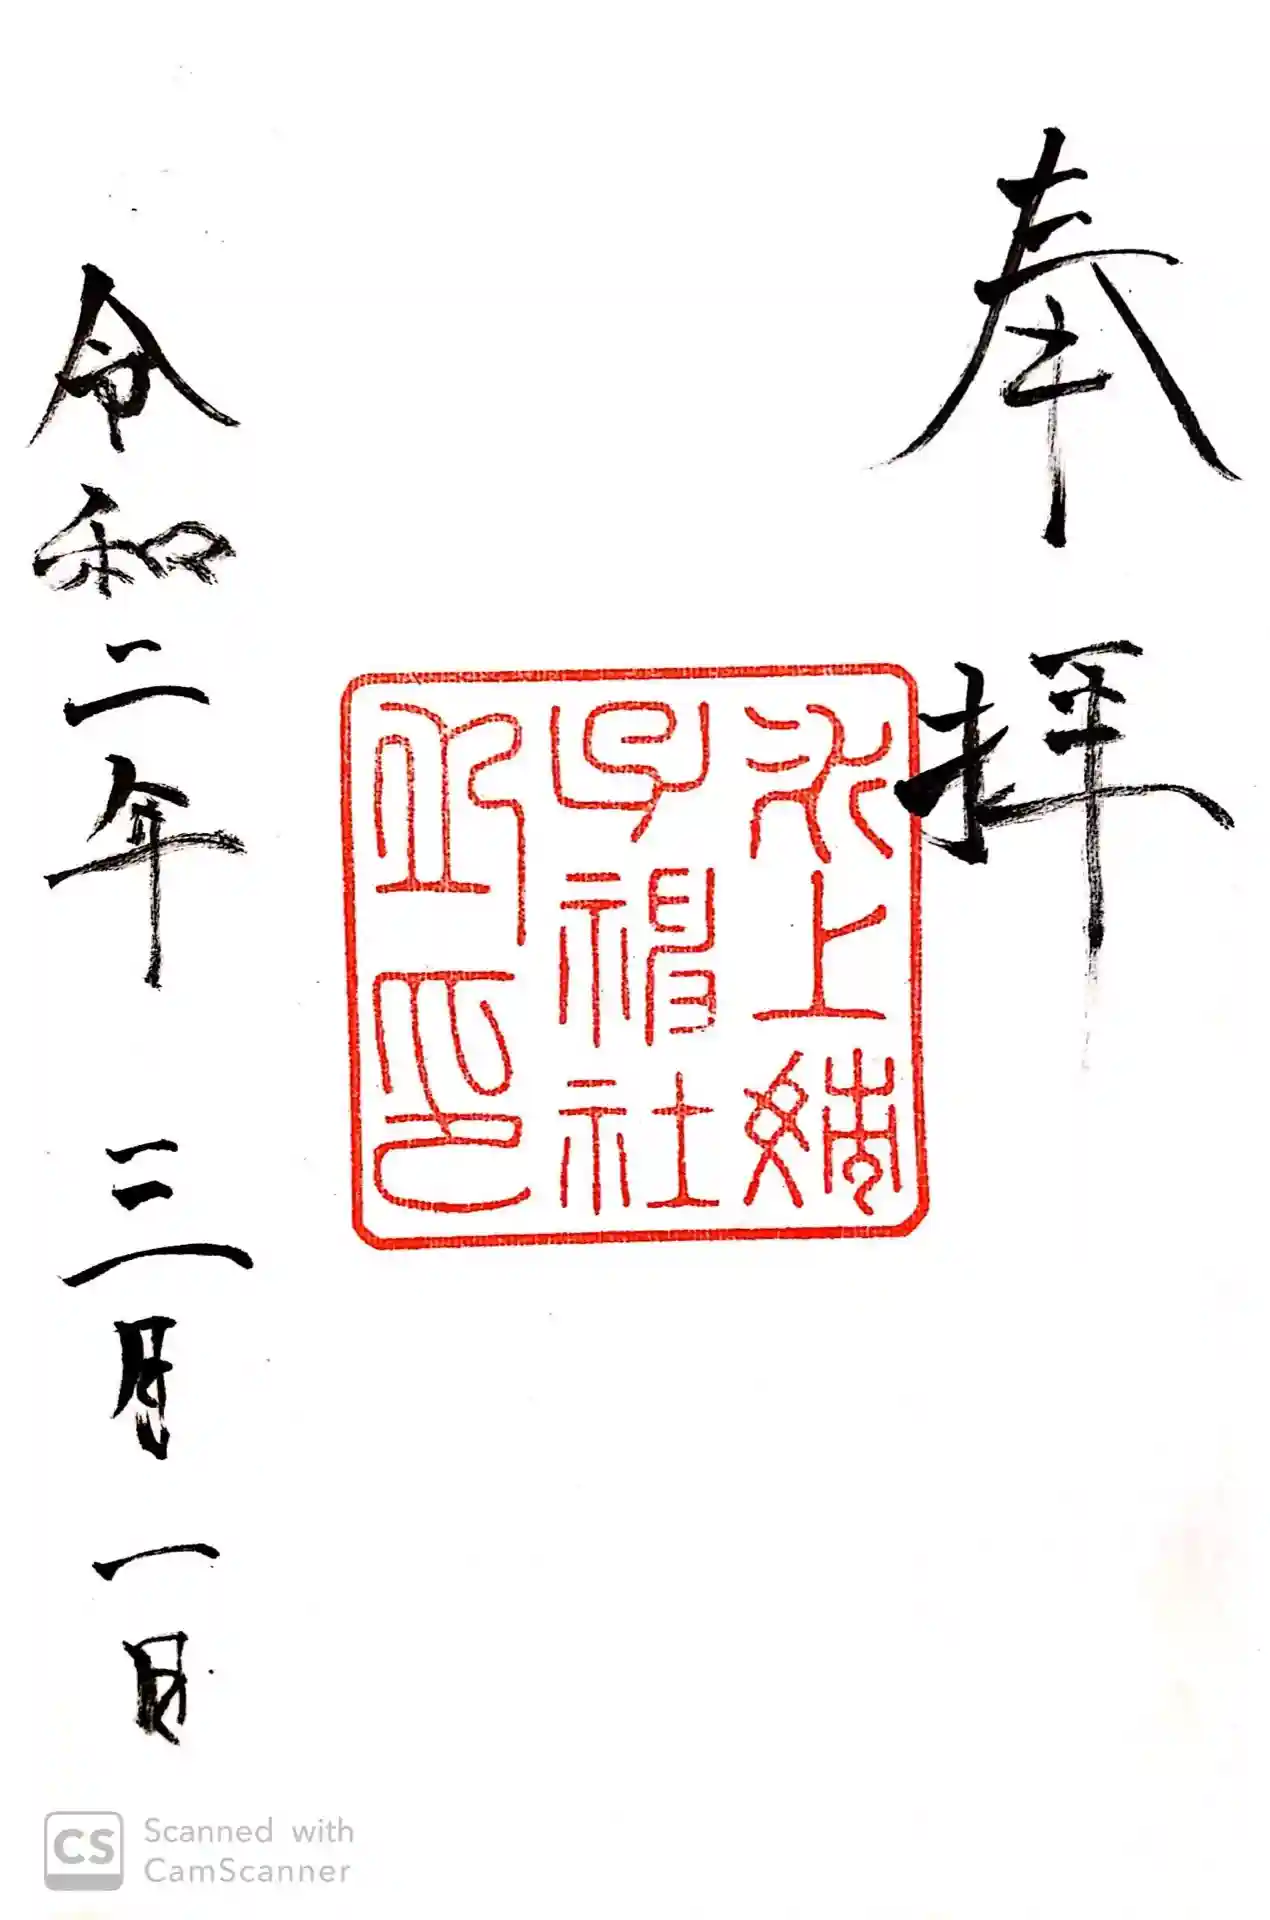 奉拝
氷上姉
子神社
之印
令和二年 三月一日
CS Scanned with
CamScanner